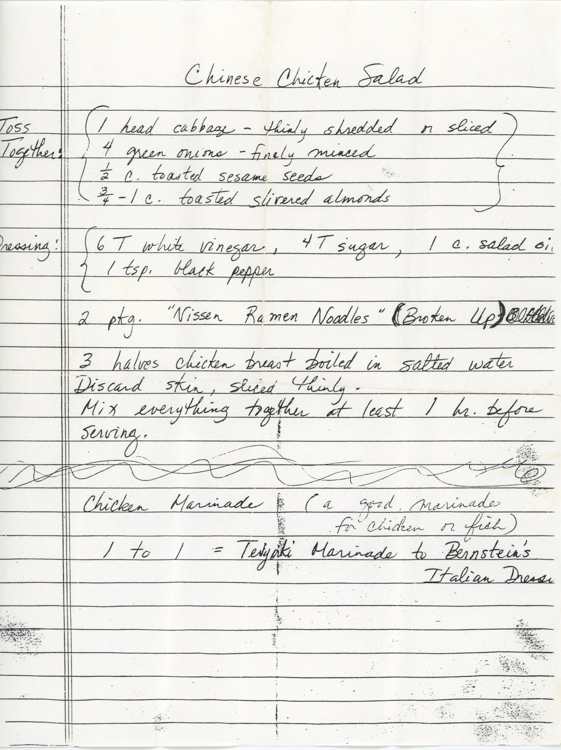 Chinese Chicken Salad
Toss Together:
1 head cabbage - thinly shredded or sliced
4 green onions - finely minced
1/2 c. toasted sesame seeds
3/4 - 1 c. toasted slivered almonds
Dressing:
6 T white vinegar, 4 T sugar, 1 c. salad oi
1 tsp. black pepper
2 pkg. "Nissen Ramen Noodles" (Broken Up)
3 halves chicken breast boiled in salted water
Discard skin, sliced thinly.
Mix everything together at least 1 hr. before
serving.
Chicken Marinade (a good marinade
for chicken or fish)
1 to 1 = Teriyaki Marinade to Bernstein's
Italian Dress